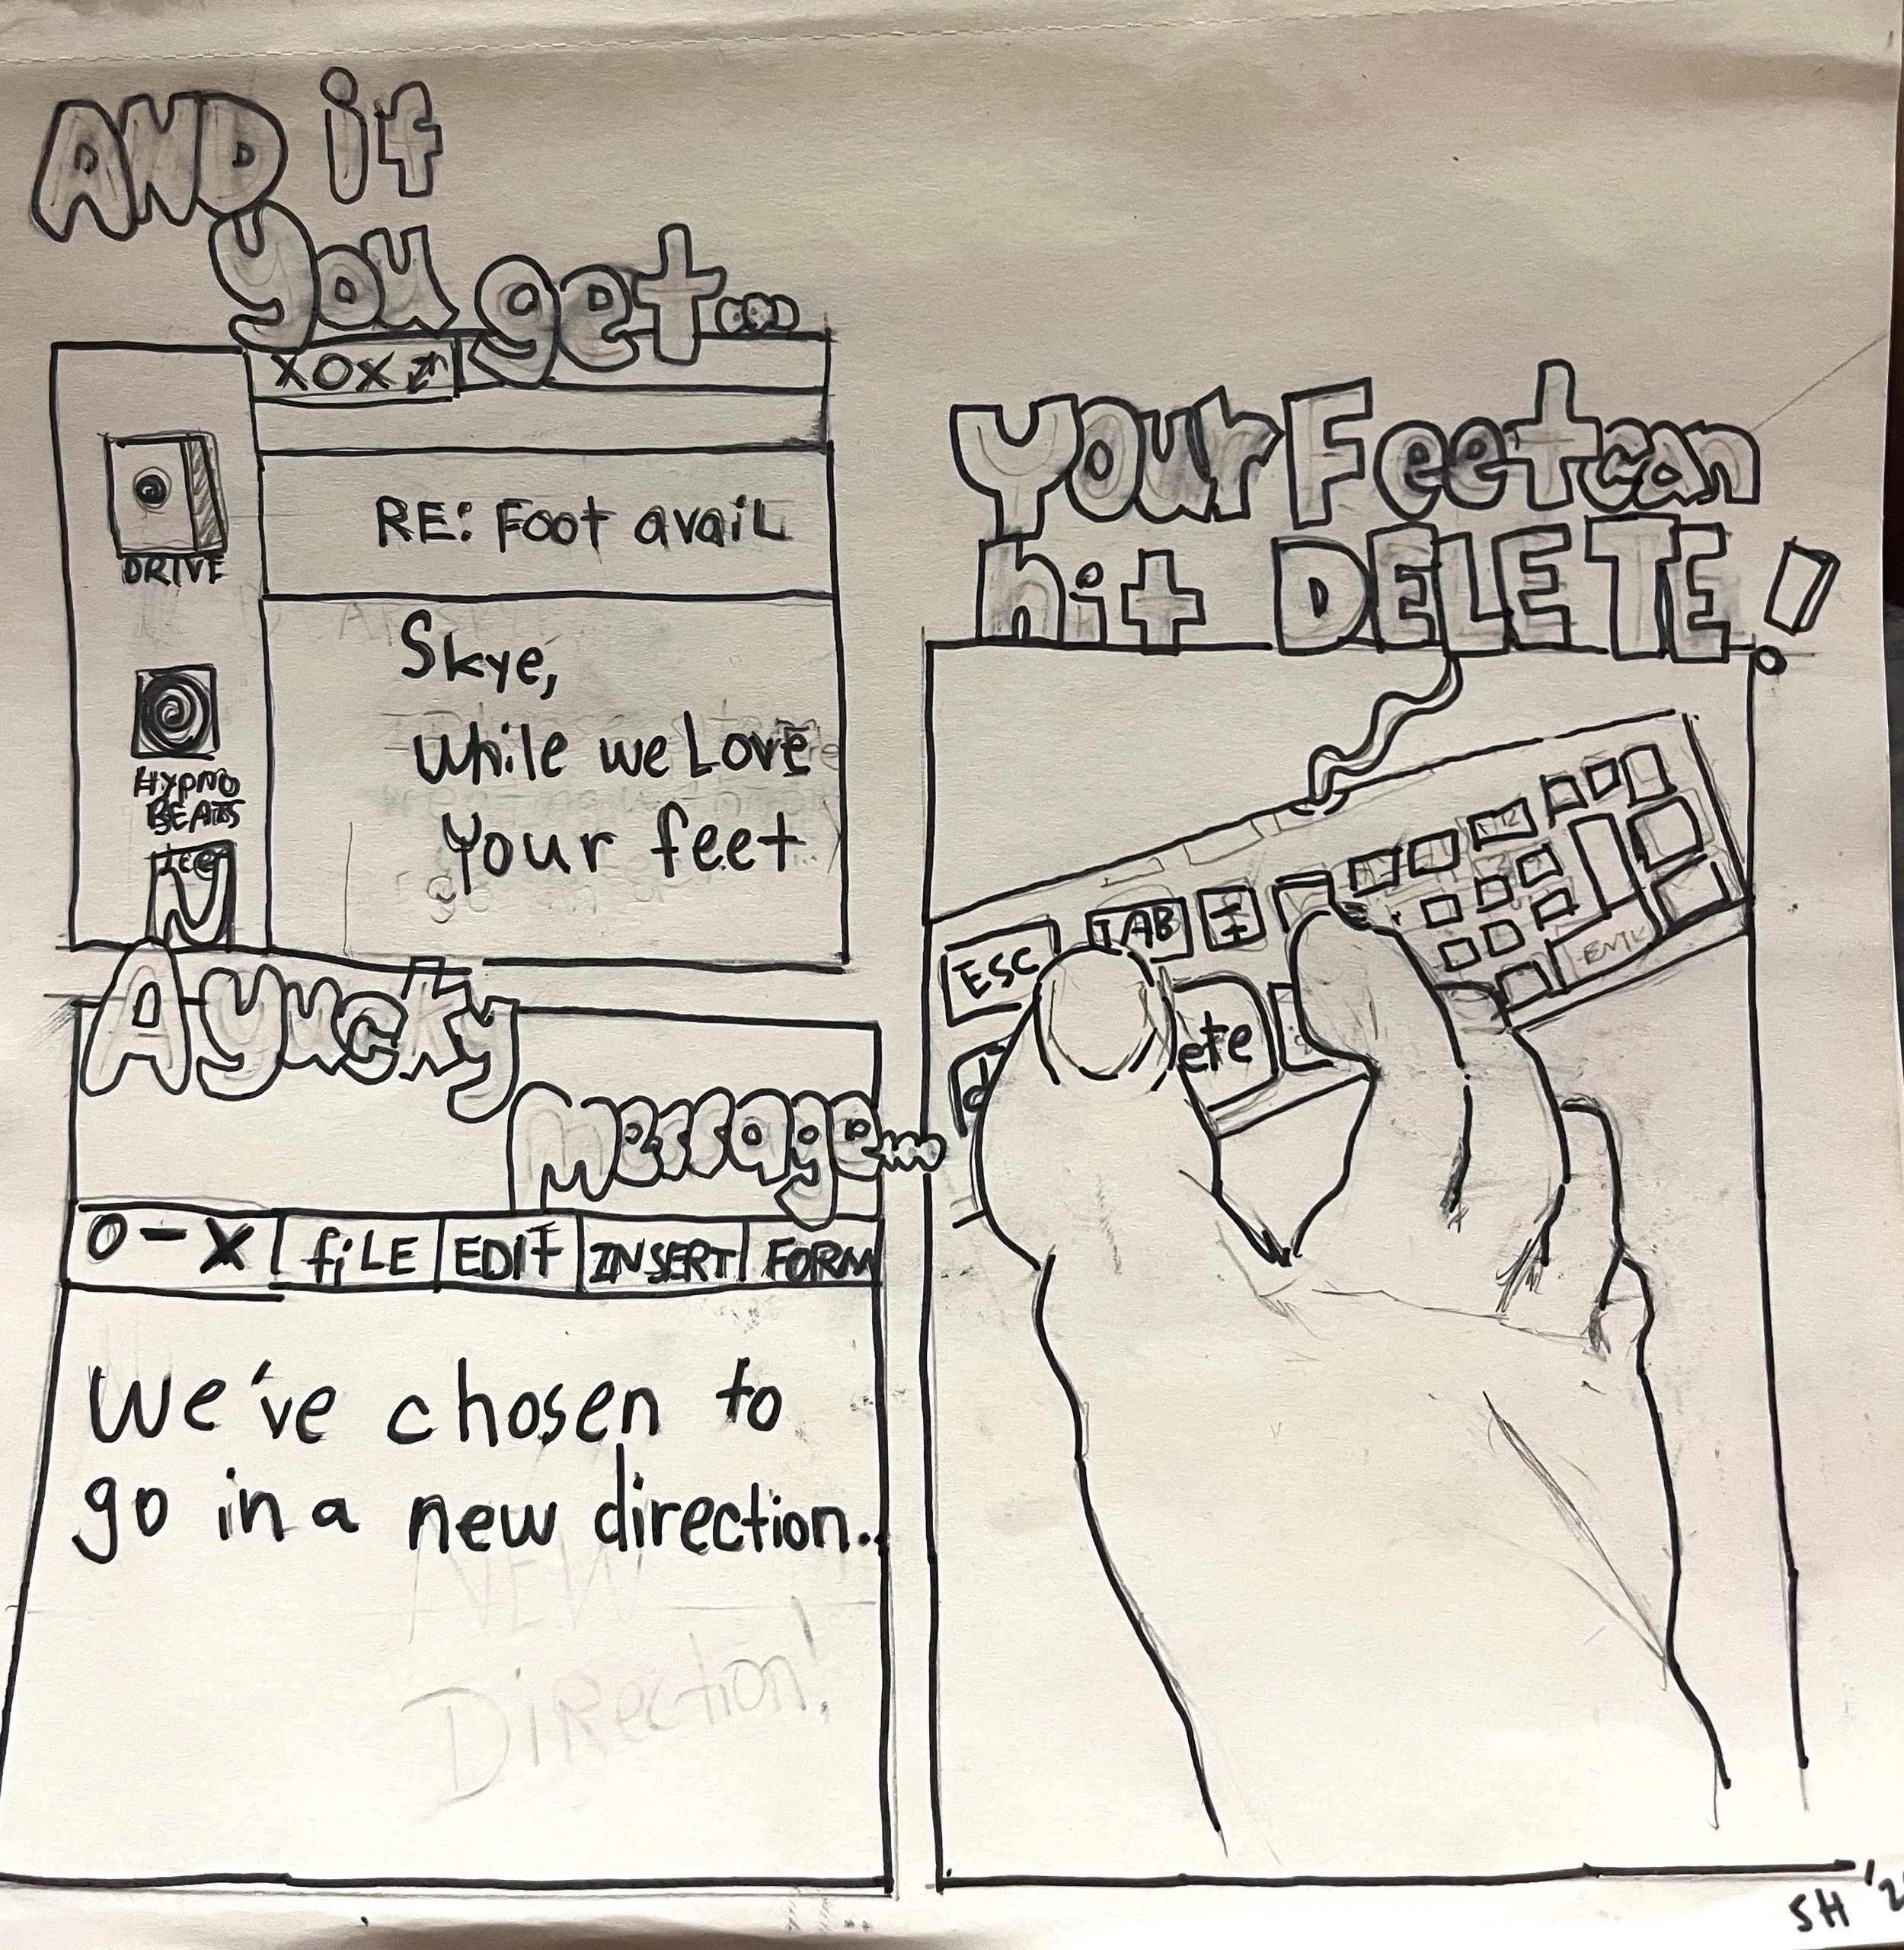 AND if
you get...
XOX
DRIVE
RE: Foot avail
Skye,
while we Love
your feet
HYPNO
BEATS
A yucky
message...
O - X
fiLE
EDIT
INSERT
FORM
We've chosen to
go in a new direction..
NEW
Direction!
your Feet can
hit DELETE!
ESC
TAB
ete
d
SH